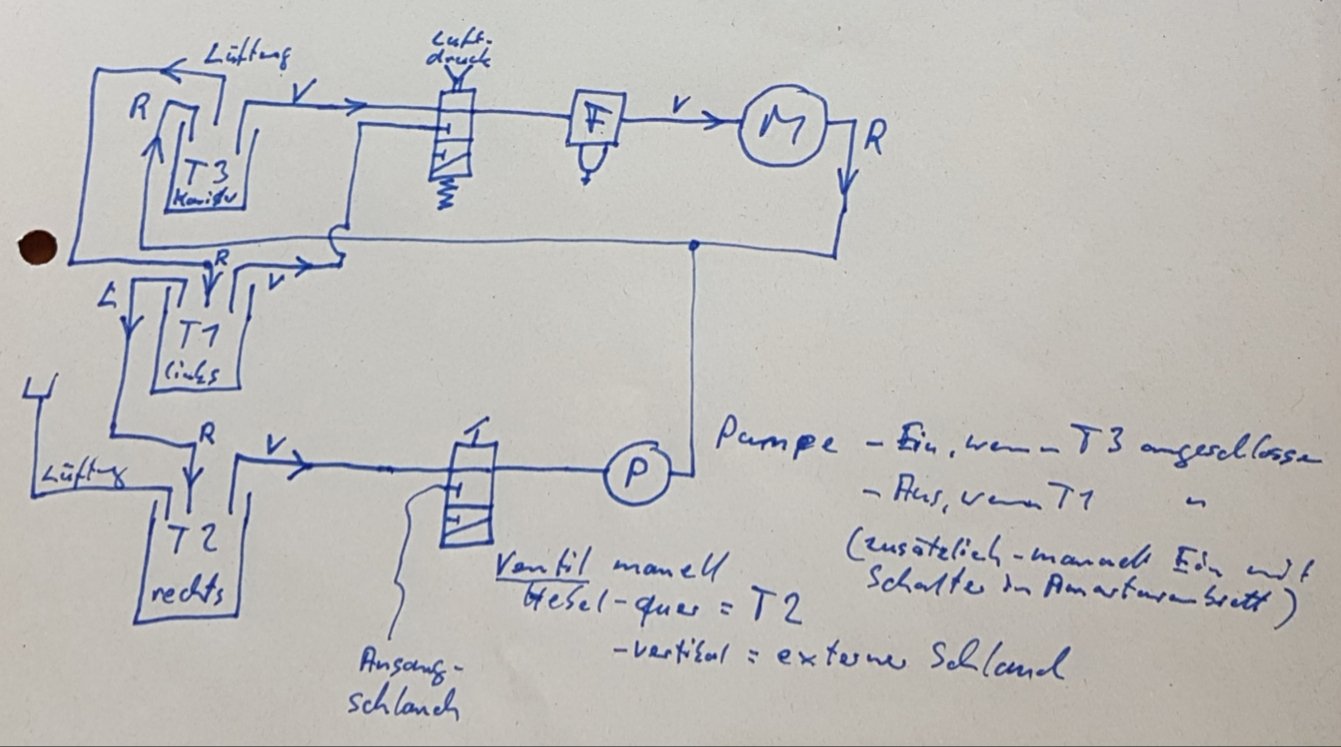 Lüftung
Luft-
druck
R
V
F
V
M
R
T3
R
V
L
T1
links
R
V
Lüftung
T2
rechts
P
Pumpe - Ein, wenn T3 angeschlossen
- Aus, wenn T1 "
(zusätzlich - manuell Ein mit
Schalter in Amarturenbrett)
Ventil manell
Hebel - quer = T2
- vertikal = externer Schlauch
Ansaug-
schlauch